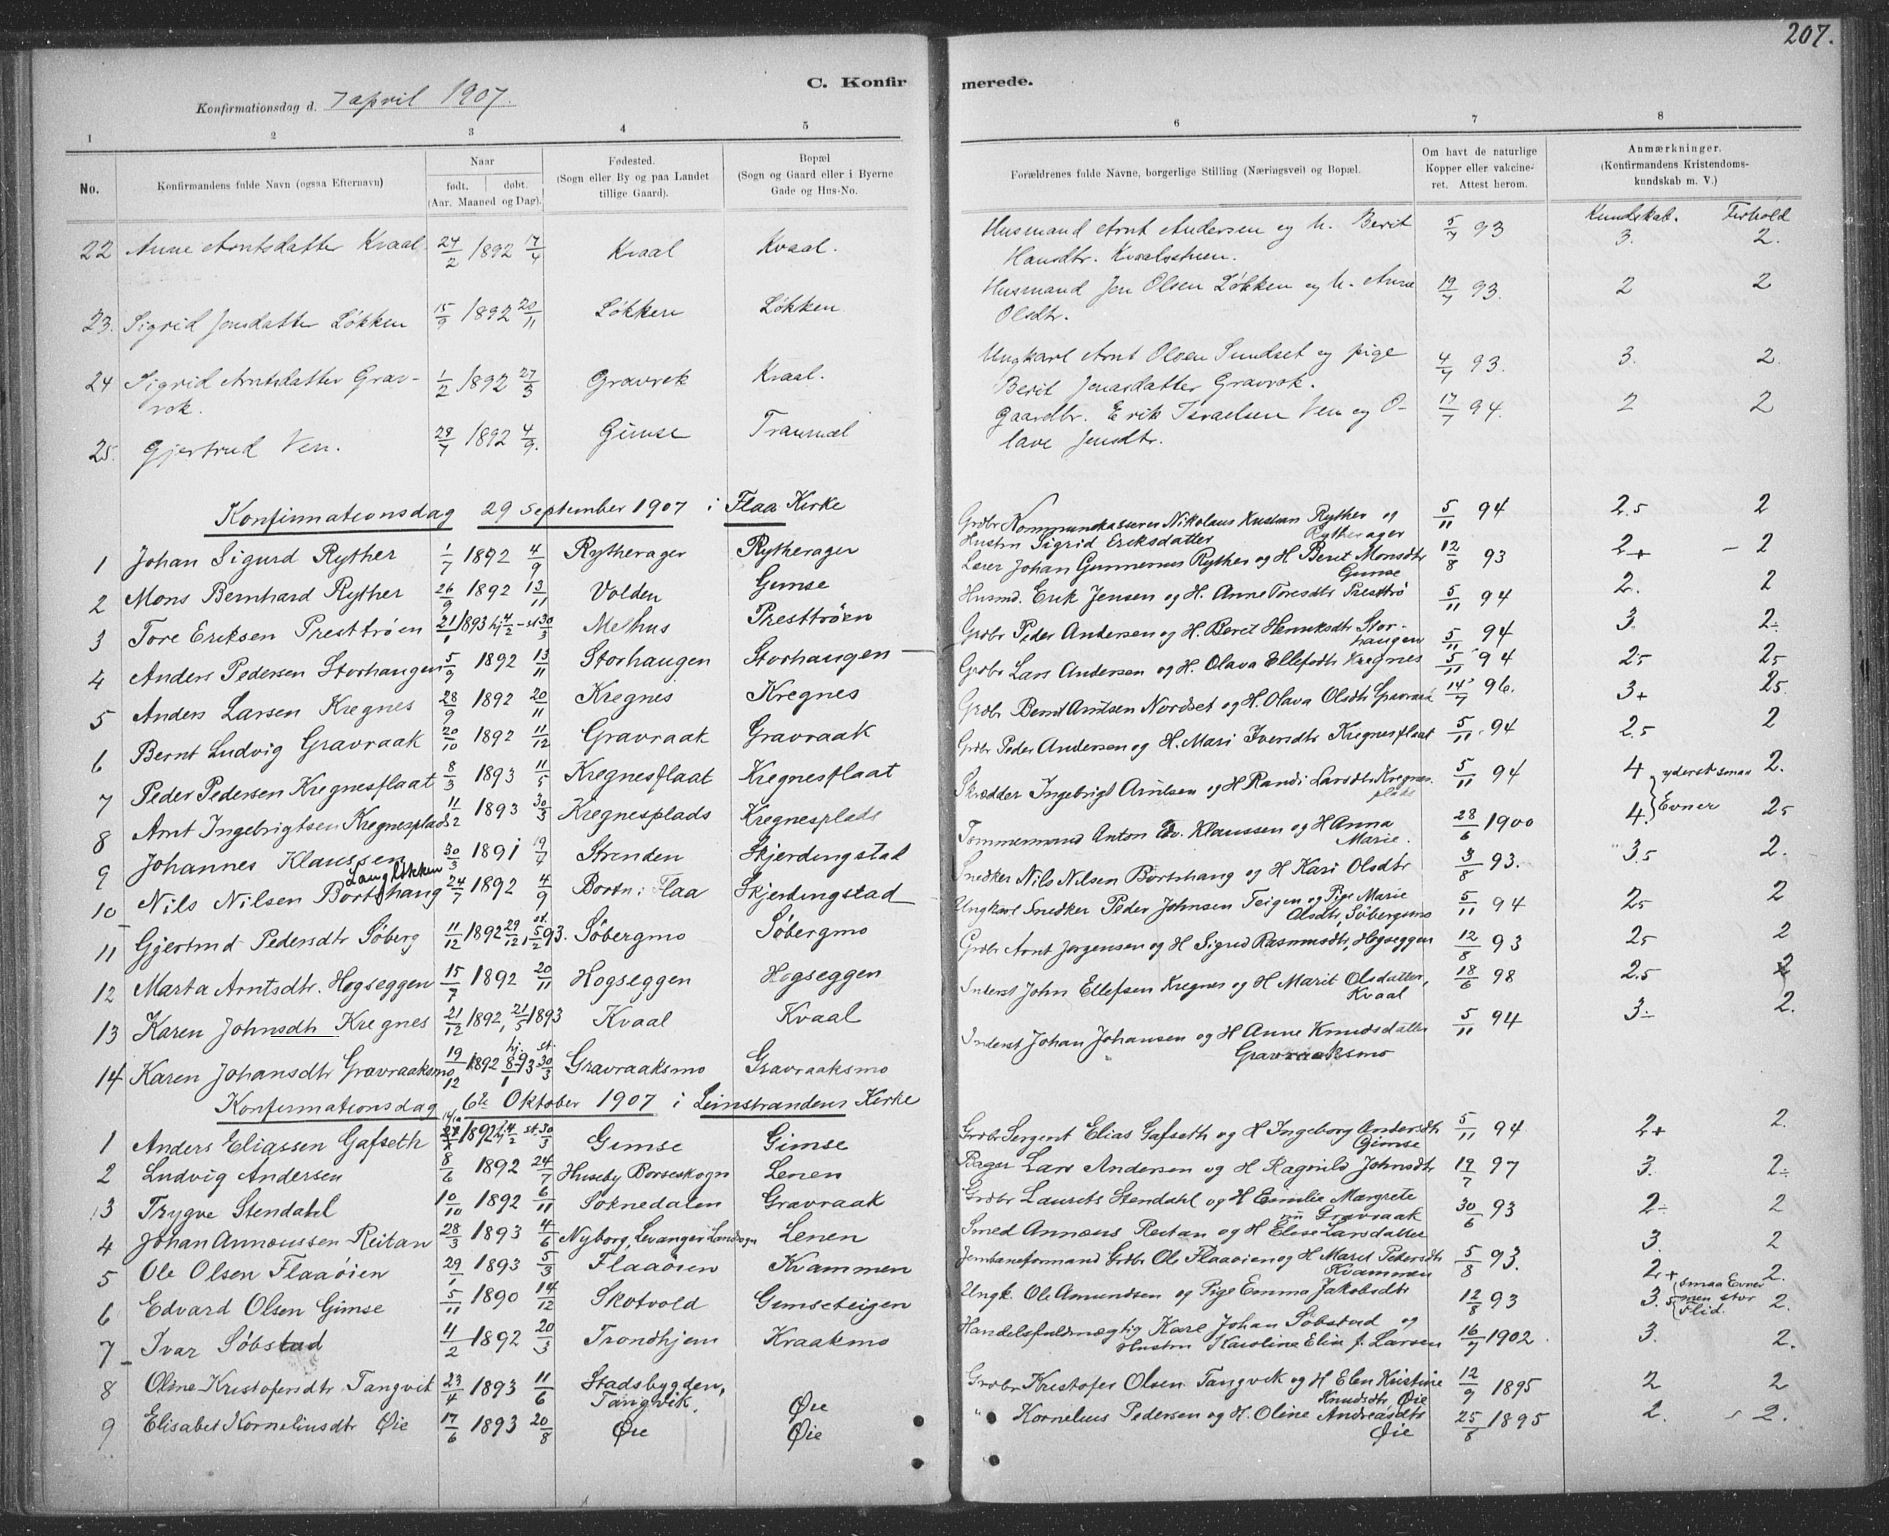 207.
C. Konfirmerede.
Konfirmationsdag d. 7 april 1907.
1 2 3 4 5 6 7 8
No.
Konfirmandens fulde Navn (ogsaa Efternavn)
Naar født. døbt. (Aar, Maaned og Dag).
Fødested. (Sogn eller By og paa Landet tillige Gaard).
Bopæl (Sogn og Gaard eller i Byerne Gade og Hus-No.
Forældrenes fulde Navne, borgerlige Stilling (Næringsvei) og Bopæl.
Om havt de naturlige Kopper eller vakcineret. Attest herom.
Anmærkninger. (Konfirmandens Kristendomskundskab m. V.)
Kundskab. Forhold
22 Anne Arntsdatter Kvaal 24/2 1892 17/4 Kvaal Kvaal. Husmand Arnt Andersen og h. Berit Hansdtr. Kvaalsstuen. 5/7 93 3. 2.
23. Sigrid Jonsdatter Løkken 15/9 1892 20/11 Løkken Løkken Husmand Jon Olsen Løkken og h. Anne Olsdtr. 19/7 93. 2 2
24 Sigrid Arntsdatter Gravrok. 1/2 1892 27/3 Gravrok Kvaal. Ungkarl Arnt Olsen Sundset og pige Berit Jonasdatter Gravrok. 4/7 93. 3. 2.
25. Gjertrud Ven. 28/7 1892 4/9. Gimse Traamæl Gaardbr. Erik Israelsen Ven og Olave Jensdtr. 17/7 94. 2 2
Konfirmationsdag 29 September 1907 i Flaa Kirke
1 Johan Sigurd Ryther 1/7 1892 4/9 Rytherager Rytherager Grdbr Kommunekasserer Nikolaus Kristian Ryther og Hustru Sigrid Eriksdatter Rytherager 5/11 94 2.5 2
2 Mons Bernhard Ryther 26/9 1892 13/11 Volden Gimse Lærer Johan Gunnerus Ryther og H Beret Monsdtr Gimse 12/8 93 2+ - 2
3 Tore Eriksen Presttrøen 21/1 1893 hj 4/2 - st 30/3 Melhus Presttrøen Husmd. Erik Jensen og H. Anne Toresdtr Presttrø 5/11 94 2. 2
4 Anders Pedersen Storhaugen 5/9 1892 13/11 Storhaugen Storhaugen Grdbr Peder Andersen og H. Beret Henriksdtr Storhaugen 5/11 94 3. 2÷
5 Anders Larsen Kregnes 28/9 1892 20/11 Kregnes Kregnes Grdbr Lars Andersen og H. Olava Ellefsdtr Kregnes 5/11 94 25 25
6 Bernt Ludvig Gravraak 20/10 1892 11/12 Gravraak Gravraak Grdbr Bernt Arntsen Nordset og H. Olava Olsdtr Gravraak 14/7 96. 3+ 25.
7 Peder Pedersen Kregnesflaat 8/3 1893 11/5 Kregnesflaat Kregnesflaat Grdbr Peder Andersen og H. Mari Iversdtr Kregnesflaat 5/11 94 2.5 2
8 Arnt Ingebrigtsen Kregnesplads 11/2 1893 30/3 Kregnesplads Kregnesplads Skrædder Ingebrigt Arntsen og H Randi Larsdtr Kregnesplads 5/11 94 4 yderst smaa Evner 2.
9 Johannes Klaussen Langløkken 30/3 1891 19/7 Stranden Skjerdingstad Tømmermand Anton Edv. Klaussen og H Anna Marie. 28/6 1900 4. 25
10 Nils Nilsen Bortshaug 24/7 1892 4/9 Bortn: Flaa Skjerdingstad Snedker Nils Nilsen Bortshaug og H Kari Olsdtr 3/8 93. 3.5 2.
11 Gjertrud Pedersdtr Søberg 11/12 1892 29/12, st. 5/2 93. Søbergmo Søbergmo Ungkarl Snedker Peder Johnsen Teigen og Pige Marie Olsdtr, Søbergmo 5/11 94 25 2
12 Marta Arntsdtr. Hogseggen 15/7 1892 20/11 Hogseggen Hogseggen Grdbr Arnt Jørgensen og H Sigrid Rasmusdtr, Hogseggen 12/8 93 25 2
13 Karen Johnsdtr Kregnes 21/12 1892, 21/5 1893 Kvaal Kvaal Inderst John Ellefsen Kregnes og H Marit Olsdatter, Kvaal 18/6 98 2.5 2
14 Karen Johansdtr Gravraaksmo 19/12 1892 hj. 8/1 93 st. 30/3 Gravraaksmo Gravraaksmo Inderst Johan Johansen og H Anne Knudsdatter Gravraaksmo 5/11 94 3÷ 2.
Konfirmationsdag 6te Oktober 1907 i Leinstrandens Kirke
1 Anders Eliassen Gafseth 1892 hj 4/2 st. 30/3 Gimse Gimse Grdbr Sergent Elias Gafseth og H Ingeborg Andersdtr Gimse 5/11 94 2+ 2.
2 Ludvig Andersen 8/6 1892 24/7 Huseby Børseskogn Lenen Bager Lars Andersen og H Ragnild Johnsdtr 19/7 97 3. 2÷
3 Trygve Stendahl 10/10 1892 6/11 Soknedalen Gravraak Grdbr Laurits Stendahl og H Emilie Margrete nu Gravraak 30/6 93 2÷ 2
4 Johan Annæussen Reitan 28/3 1893 4/6 Nyborg, Levanger Landsogn Lenen Smed Annæus Reitan og H Elise Larsdatter 3. 2
5 Ole Olsen Flaaøien 29/1 1893 5/3 Flaaøien Kvammen Jernbaneformand Grdbr Ole Flaaøien og H Maret Petersdtr Kvammen 5/8 93. 2+ 2.
6 Edvard Olsen Gimse 5/11 1890 14/12 Skotvold Gimseteigen Ungk. Ole Amundsen og Pige Emma Jakobsdtr 12/8 93 3.5 smaa Evner men stor Flid. 2.
7 Ivar Søbstad 11/2 1892 20/3 Trondhjem Kraaksmo Handelsfuldmægtig Karl Johan Søbstad og Hustru Karoline Elin f. Larsen 16/7 1902. 3. 2.
8 Oline Kristofersdtr Tangvik 23/4 1893 11/6 Stadsbygden, Tangvik, Øie Grdbr Kristofer Olsen Tangvik og H Elen Kristine Knudsdtr, Øie 12/9 1895 2 2
9 Elisabet Korneliusdtr Øie 17/6 1893 20/8 Øie Øie " Kornelius Pedersen og H. Oline Andreasdtr Øie 25/8 1895 2. 2.